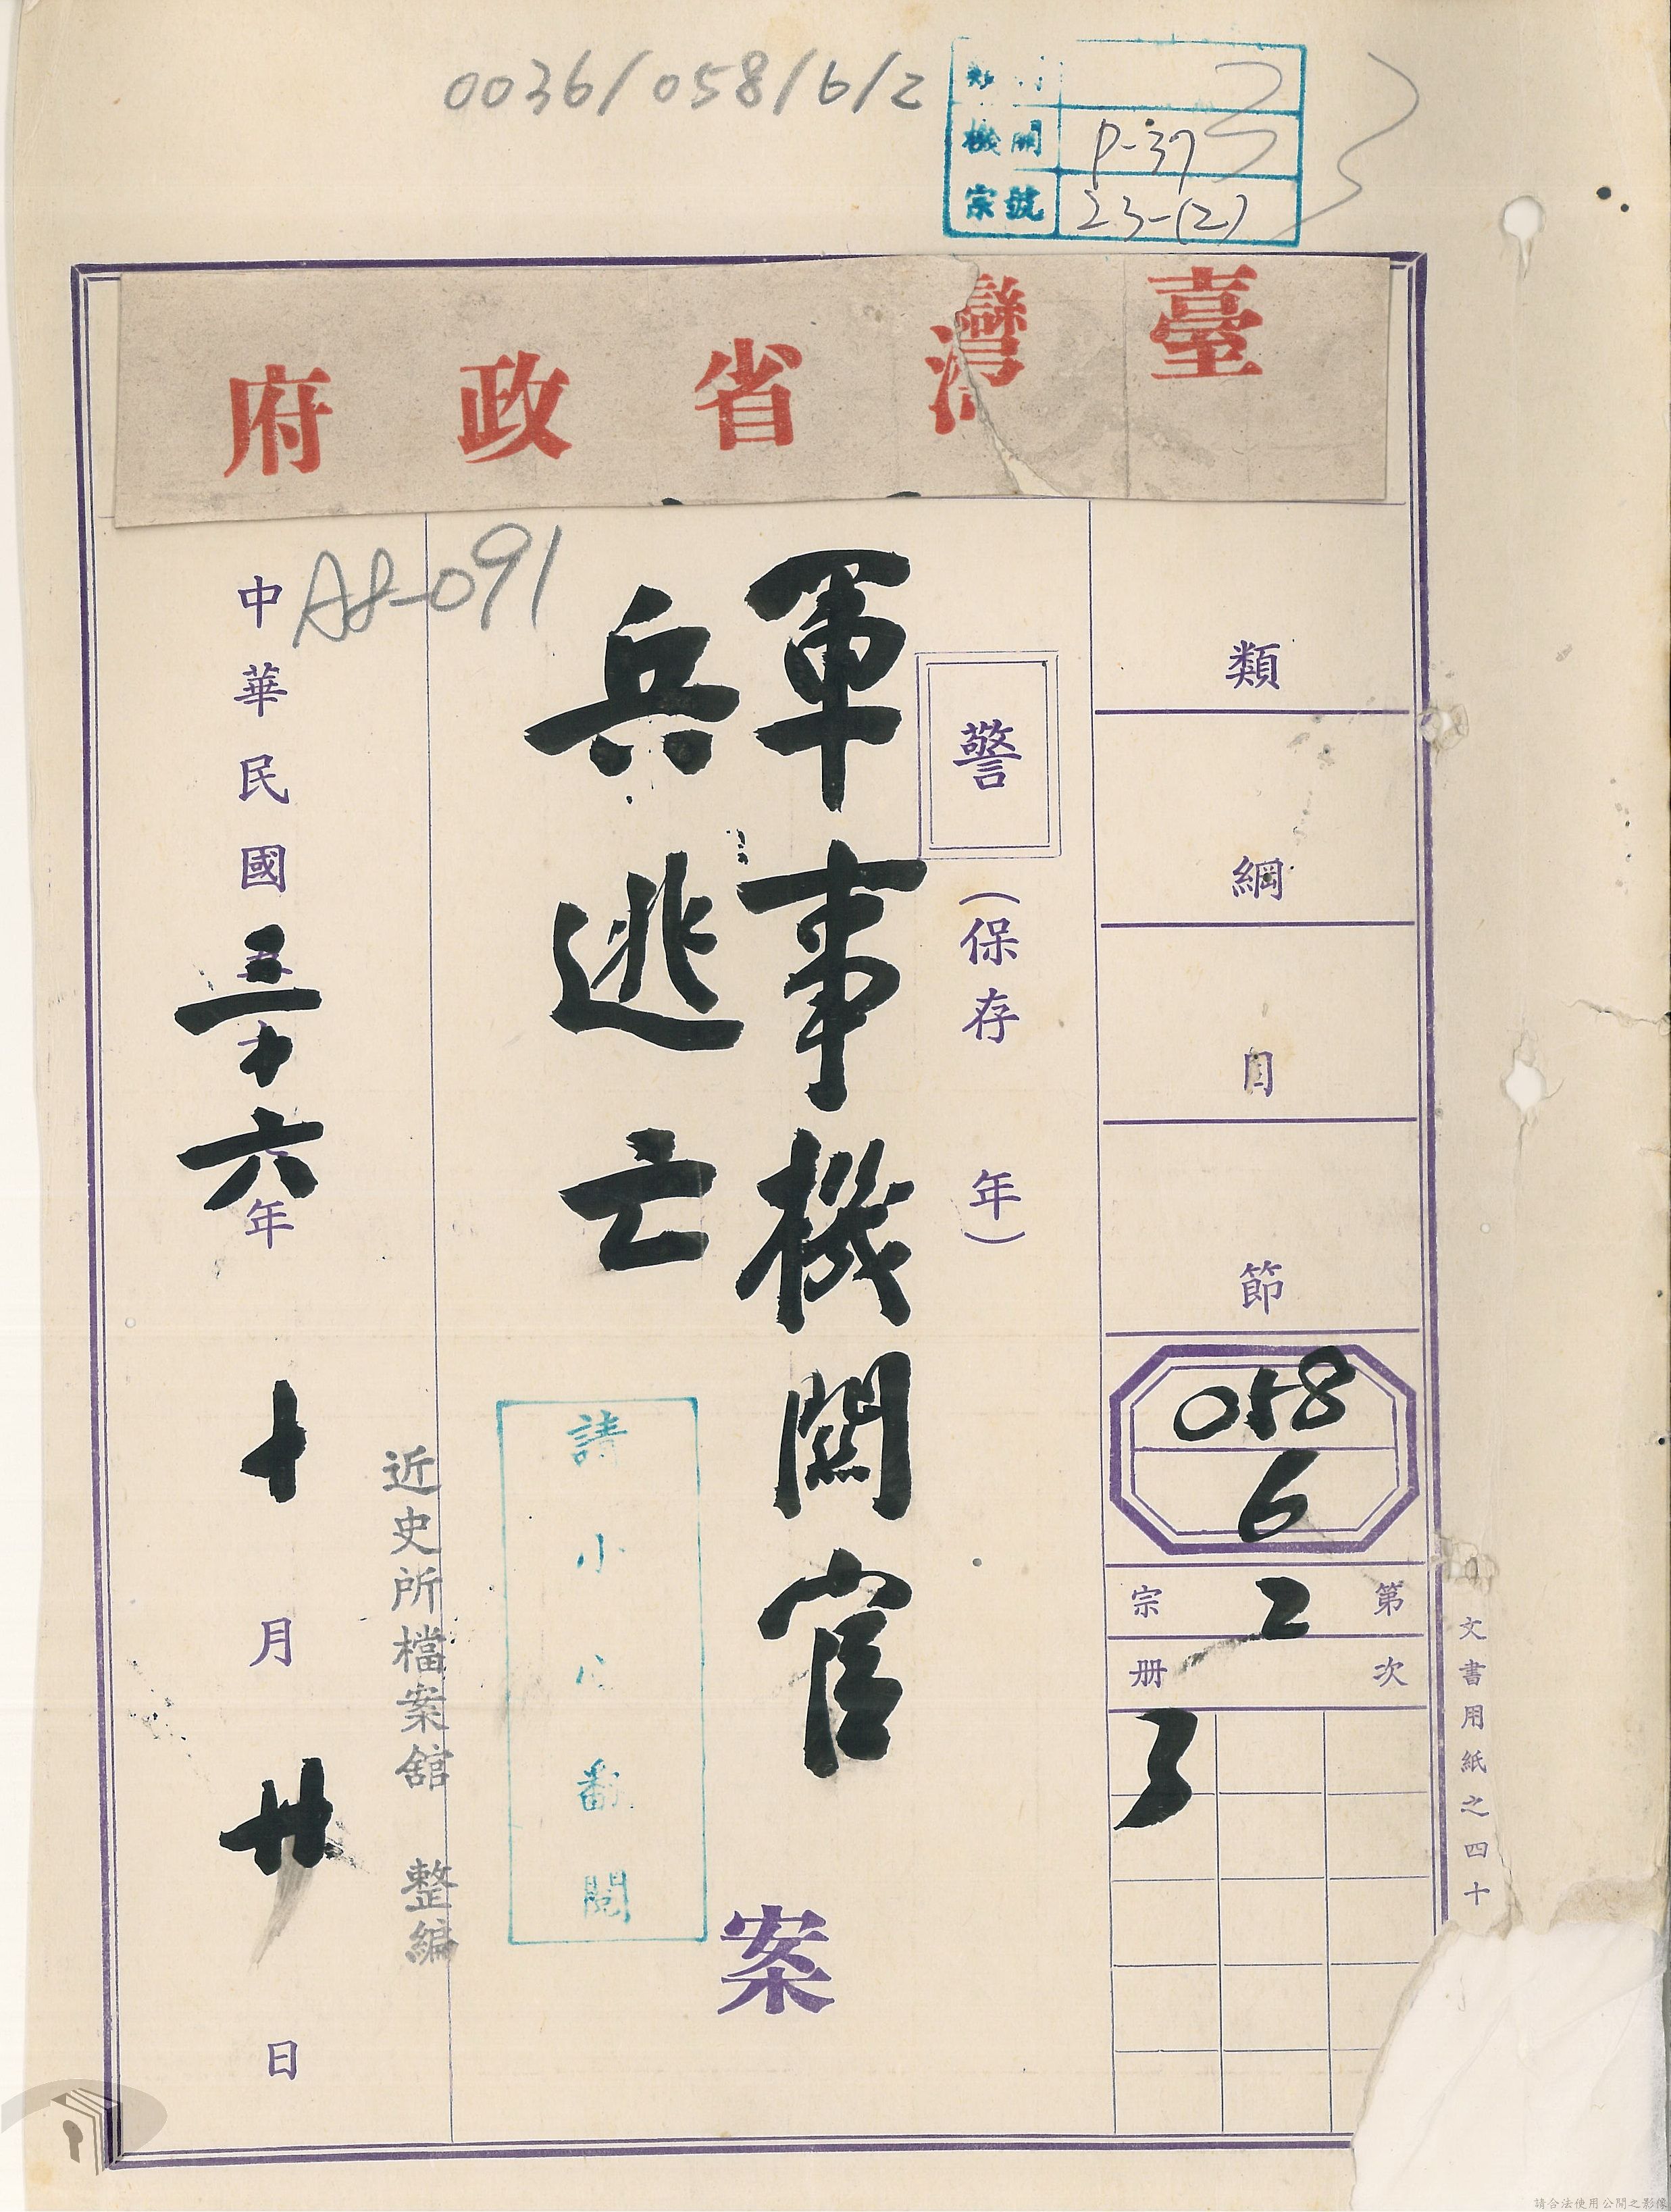 0036/058/6/2
機關 P-37
宗號 23-(2)
臺灣省政府
類
綱
目
節
058
6
第2宗
次3册
文書用紙之四十
警
(保存 年)
軍事機關官
兵逃亡
案
請小心翻閱
A8-091
近史所檔案館 整編
中華民國三十六年十月廿日
請合法使用公開之影像